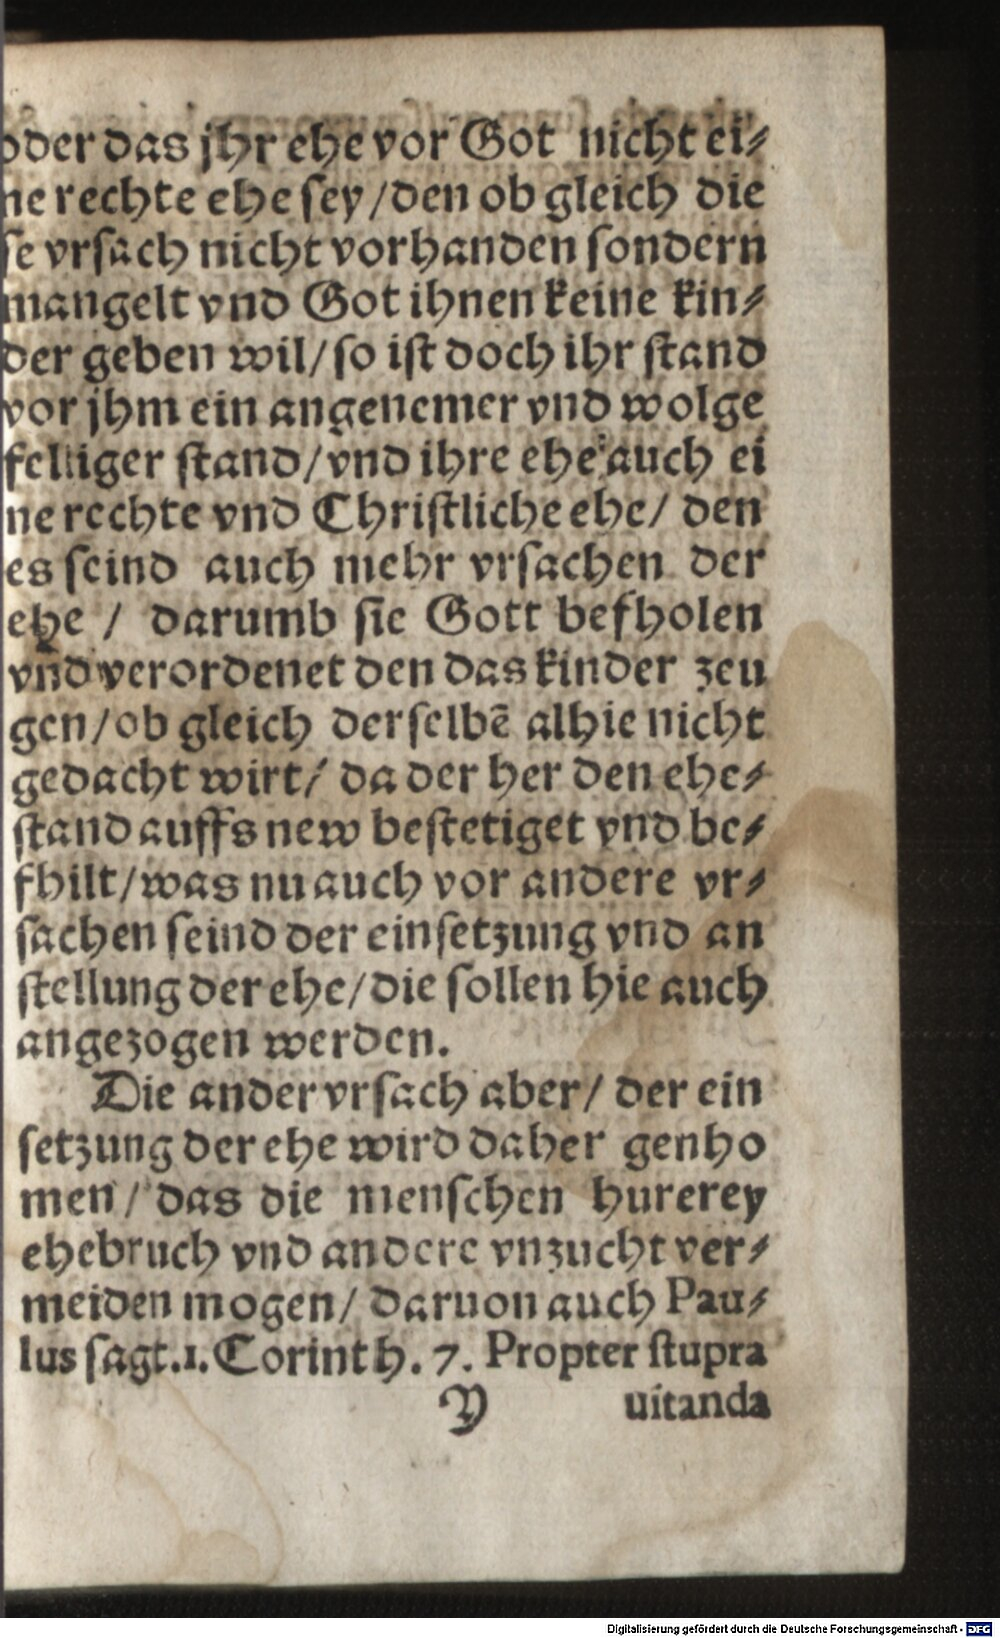 oder das jhr ehe vor Got nicht ei⸗
ne rechte ehe sey/den ob gleich die
se vrsach nicht vorhanden sondern
mangelt vnd Got ihnen keine kin⸗
der geben wil/so ist doch ihr stand
vor jhm ein angenemer vnd wolge
felliger stand/vnd ihre ehe auch ei
ne rechte vnd Christliche ehe/ den
es seind auch mehr vrsachen der
ehe / darumb sie Gott befholen
vnd verordenet den das kinder zeu
gen/ob gleich derselbē alhie nicht
gedacht wirt/ da der her den ehe⸗
stand auffs new bestetiget vnd be⸗
fhilt/was nu auch vor andere vr⸗
sachen seind der einsetzung vnd an
stellung der ehe/die sollen hie auch
angezogen werden.
Die ander vrsach aber/ der ein
setzung der ehe wird daher genho
men/ das die menschen hurerey
ehebruch vnd andere vnzucht ver⸗
meiden mogen/ daruon auch Pau⸗
lus sagt.1.Corinth.7. Propter stupra
Y uitanda
Digitalisierung gefördert durch die Deutsche Forschungsgemeinschaft - DFG